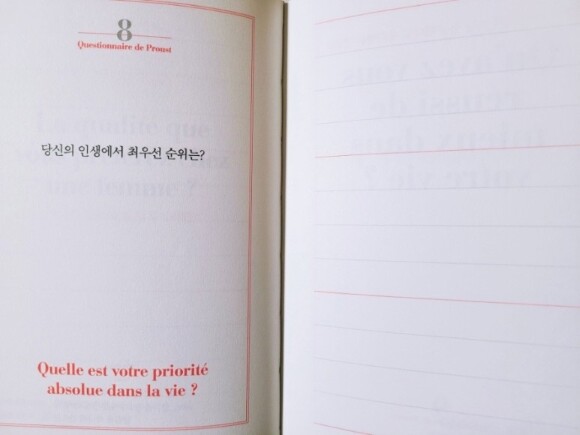 8
Questionnaire de Proust
당신의 인생에서 최우선 순위는?
Quelle est votre priorité
absolue dans la vie ?